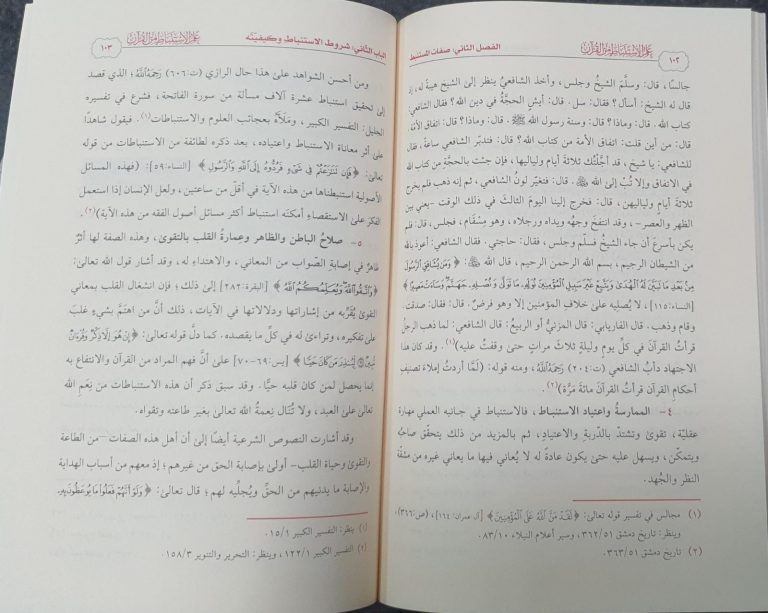 ١٠٢
علم الاستنباط من القرآن
الفصل الثاني: صفات المستنبط
جالسًا، قال: وسلَّم الشيخُ وجلس، وأخذ الشافعيُّ ينظر إلى الشيخ هيبةً له، إذ
قال له الشيخ: أسأل؟ فقال: سل. قال: أيش الحجَّةُ في دين الله؟ فقال الشافعي:
كتاب الله. قال: وماذا؟ قال: وسنة رسول الله ﷺ. قال: وماذا؟ قال: اتفاق الأمة.
قال: من أين قلت: اتفاق الأمة من كتاب الله؟ قال: فتدبَّر الشافعي ساعةً. فقال
للشافعي: يا شيخ، قد أجَّلتُك ثلاثة أيام ولياليها، فإن جئت بالحجَّة من كتاب الله
في الاتفاق وإلا تُبْ إلى الله ﷻ. قال: فتغيَّر لونُ الشافعي، ثم إنه ذهب فلم يخرج
ثلاثةَ أيام ولياليهن، قال: فخرج إلينا اليومَ الثالث في ذلك الوقت -يعني بين
الظهر والعصر-، وقد انتفخ وجهُه ويداه ورجلاه، وهو مِسْقَام، فجلس، قال: فلم
يكن بأسرعَ أن جاء الشيخُ فسلَّم وجلس، فقال: حاجتي. فقال الشافعي: أعوذ بالله
من الشيطان الرجيم، بسم الله الرحمن الرحيم، قال الله ﷻ: ﴿وَمَن يُشَاقِقِ ٱلرَّسُولَ
مِنۢ بَعۡدِ مَا تَبَيَّنَ لَهُ ٱلۡهُدَىٰ وَيَتَّبِعۡ غَيۡرَ سَبِيلِ ٱلۡمُؤۡمِنِينَ نُوَلِّهِۦ مَا تَوَلَّىٰ وَنُصۡلِهِۦ جَهَنَّمَۖ وَسَآءَتۡ مَصِيرًا﴾
[النساء: ١١٥]، لا يُصليه على خلاف المؤمنين إلا وهو فرضٌ. قال: فقال: صدقت،
وقام وذهب. قال الفاريابي: قال المزنيُّ أو الربيعُ: قال الشافعي: لما ذهب الرجلُ
قرأتُ القرآنَ في كلِّ يومٍ وليلةٍ ثلاثَ مراتٍ حتى وقفتُ عليه)(١). وقد كان هذا
الاجتهاد دأبُ الشافعي (ت: ٢٠٤) رَحِمَهُ ٱللَّهُ، ومنه قوله: (لَمَّا أردتُ إملاءَ تصنيف
أحكام القرآن قرأتُ القرآنَ مائةَ مَرَّة)(٢).
٤- الممارسةُ واعتيادِ الاستنباط، فالاستنباط في جانبه العملي مهارة
عقليّة، تقوى وتشتدّ بالدّربةِ والاعتيادِ، ثم بالمزيد من ذلك يتحقّق صاحبُه
ويتمكّن، ويسهل عليه حتى يكون عادةً له لا يُعاني فيها ما يعاني غيره من مشقّة
النظر والجُهد.
(١) مجالس في تفسير قوله تعالى: ﴿لَقَدۡ مَنَّ ٱللَّهُ عَلَى ٱلۡمُؤۡمِنِينَ﴾ [آل عمران: ١٦٤]، (ص: ٣٦٦)،
وينظر: تاريخ دمشق ٣٦٢/٥١، وسير أعلام النبلاء ٨٣/١٠.
(٢) تاريخ دمشق ٣٦٣/٥١.
الباب الثاني: شروط الاستنباط وكيفيّته
علم الاستنباط من القرآن
١٠٣
ومن أحسن الشواهد على هذا حال الرازي (ت: ٦٠٦) رَحِمَهُ ٱللَّهُ؛ الذي قصد
إلى تحقيق استنباط عشرة آلاف مسألة من سورة الفاتحة، فشرع في تفسيره
الجليل: التفسير الكبير، ومَلَأَهُ بعجائب العلوم والاستنباطات(١). فيقول شاهدًا
على أثر معاناة الاستنباط واعتياده، بعد ذكره لطائفة من الاستنباطات من قوله
تعالى: ﴿فَإِن تَنَٰزَعۡتُمۡ فِي شَيۡءٖ فَرُدُّوهُ إِلَى ٱللَّهِ وَٱلرَّسُولِ﴾ [النساء: ٥٩]: (فهذه المسائل
الأصولية استنبطناها من هذه الآية في أقلّ من ساعتين، ولعل الإنسان إذا استعمل
الفكرَ على الاستقصاءِ أمكنَه استنباط أكثر مسائل أصول الفقه من هذه الآية)(٢).
٥- صلاحُ الباطن والظاهر وعِمارةُ القلب بالتقوى، وهذه الصفة لها أثرٌ
ظاهرٌ في إصابةِ الصَّواب من المعاني، والاهتداء له، وقد أشار قول الله تعالى:
﴿وَٱتَّقُواْ ٱللَّهَۖ وَيُعَلِّمُكُمُ ٱللَّهُ﴾ [البقرة: ٢٨٢] إلى ذلك؛ فإن انشغال القلب بمعاني
التقوى يُقرِّبه من إشاراتها ودلالاتها في الآيات، ذلك أنَّ من اهتمَّ بشيءٍ غلبَ
على تفكيره، وتراءى له في كلِّ ما يقصده. كما دلَّ قوله تعالى: ﴿إِنۡ هُوَ إِلَّا ذِكۡرٞ وَقُرۡءَانٞ
مُّبِينٞ ٦٩ لِّيُنذِرَ مَن كَانَ حَيّٗا﴾ [يس: ٦٩-٧٠] على أنَّ فهم المراد من القرآن والانتفاع به
إنما يحصل لمن كان قلبه حيًّا. وقد سبق ذكر أن هذه الاستنباطات من نِعَمِ الله
تعالى على العبد، ولا تُنَال نِعمةُ الله تعالى بغير طاعته وتقواه.
وقد أشارت النصوص الشرعية أيضًا إلى أن أهل هذه الصفات -من الطاعة
والتقوى وحياة القلب- أولى بإصابة الحق من غيرهم؛ إذ معهم من أسباب الهداية
والإصابة ما يدنيهم من الحقِّ ويُجلِّيه لهم؛ قال تعالى: ﴿وَلَوۡ أَنَّهُمۡ فَعَلُواْ مَا يُوعَظُونَ بِهِۦ
(١) ينظر: التفسير الكبير ١٥/١.
(٢) التفسير الكبير ١٢٢/١٠، وينظر: التحرير والتنوير ١٥٨/٣.